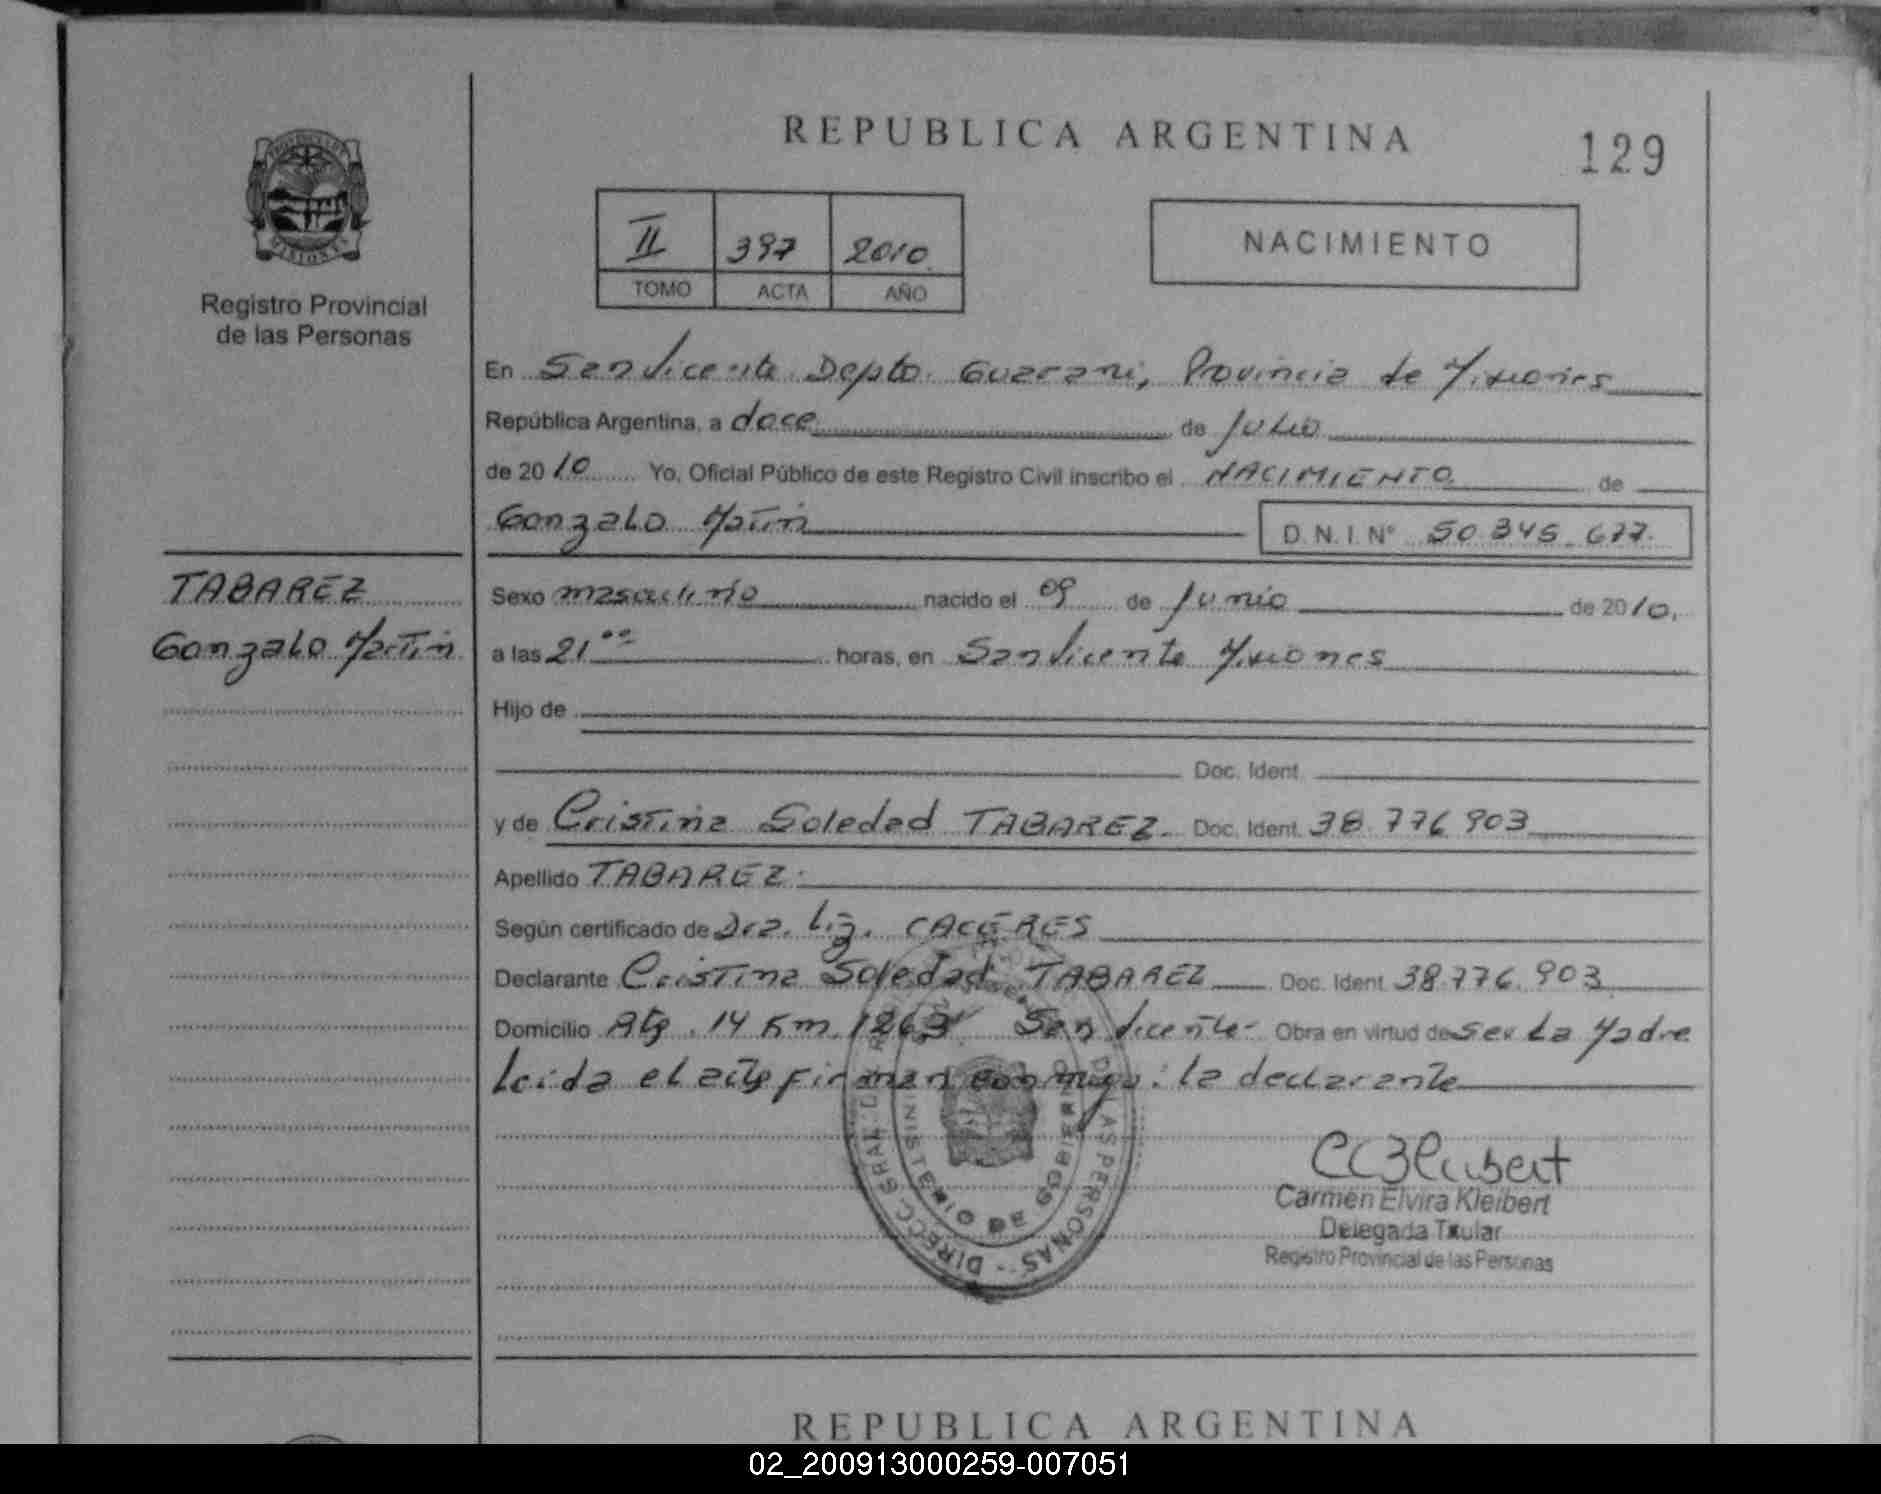 REPUBLICA ARGENTINA
129
PROVINCIA DE
MISIONES
Registro Provincial
de las Personas
II 397 2010
TOMO ACTA AÑO
NACIMIENTO
En San Vicente Depto. Guarani, Provincia de Misiones
República Argentina, a doce de Julio
de 2010 Yo, Oficial Público de este Registro Civil inscribo el NACIMIENTO de
Gonzalo Martin D.N.I. Nº 50.345.677.
TABAREZ
Gonzalo Martin
Sexo masculino nacido el 09 de Junio de 2010.
a las 21ºº horas, en San Vicente Misiones
Hijo de
Doc. Ident.
y de Cristina Soledad TABAREZ. Doc. Ident. 38.776.903
Apellido TABAREZ.
Según certificado de Dra. Liz. CACERES
Declarante Cristina Soledad TABAREZ Doc. Ident. 38.776.903
Domicilio Rta. 14 Km. 1263 San Vicente- Obra en virtud de ser La Madre
Leida el acta firman conmigo: la declarante
DIRECC. GRAL. DE LAS PERSONAS
MINISTERIO DE GOBIERNO
CEKleibert
Carmen Elvira Kleibert
Delegada Titular
Registro Provincial de las Personas
REPUBLICA ARGENTINA
02_200913000259-007051